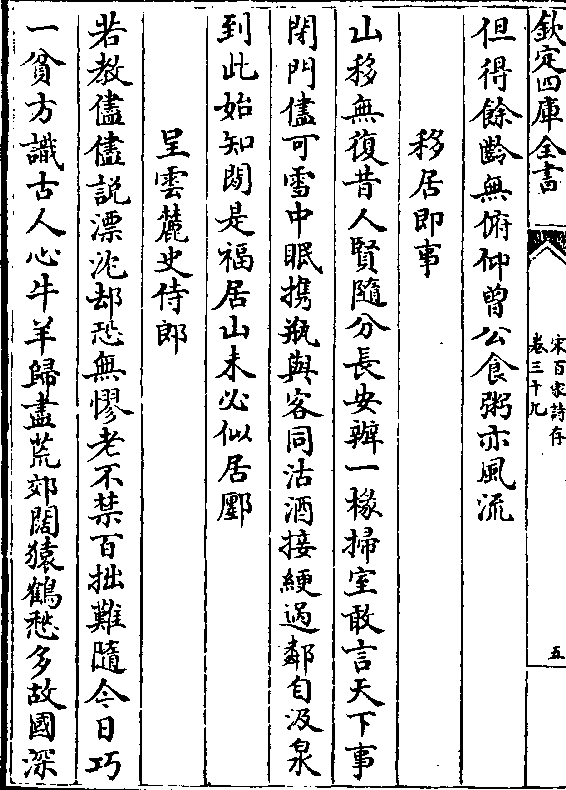 欽定四庫全書
宋百家詩存
卷三十九
五
但得餘齡無俯仰曾公食粥亦風流
移居即事
山移無復昔人賢隨分長安辦一椽掃室敢言天下事
閉門儘可雪中眠携瓶與客同沽酒接綆過鄰自汲泉
到此始知閒是福居山未必似居鄽
呈雲麓史侍郎
若教儘儘説漂沈却恐無憀老不禁百拙難隨今日巧
一貧方識古人心牛羊歸盡荒郊闊猿鶴愁多故國深